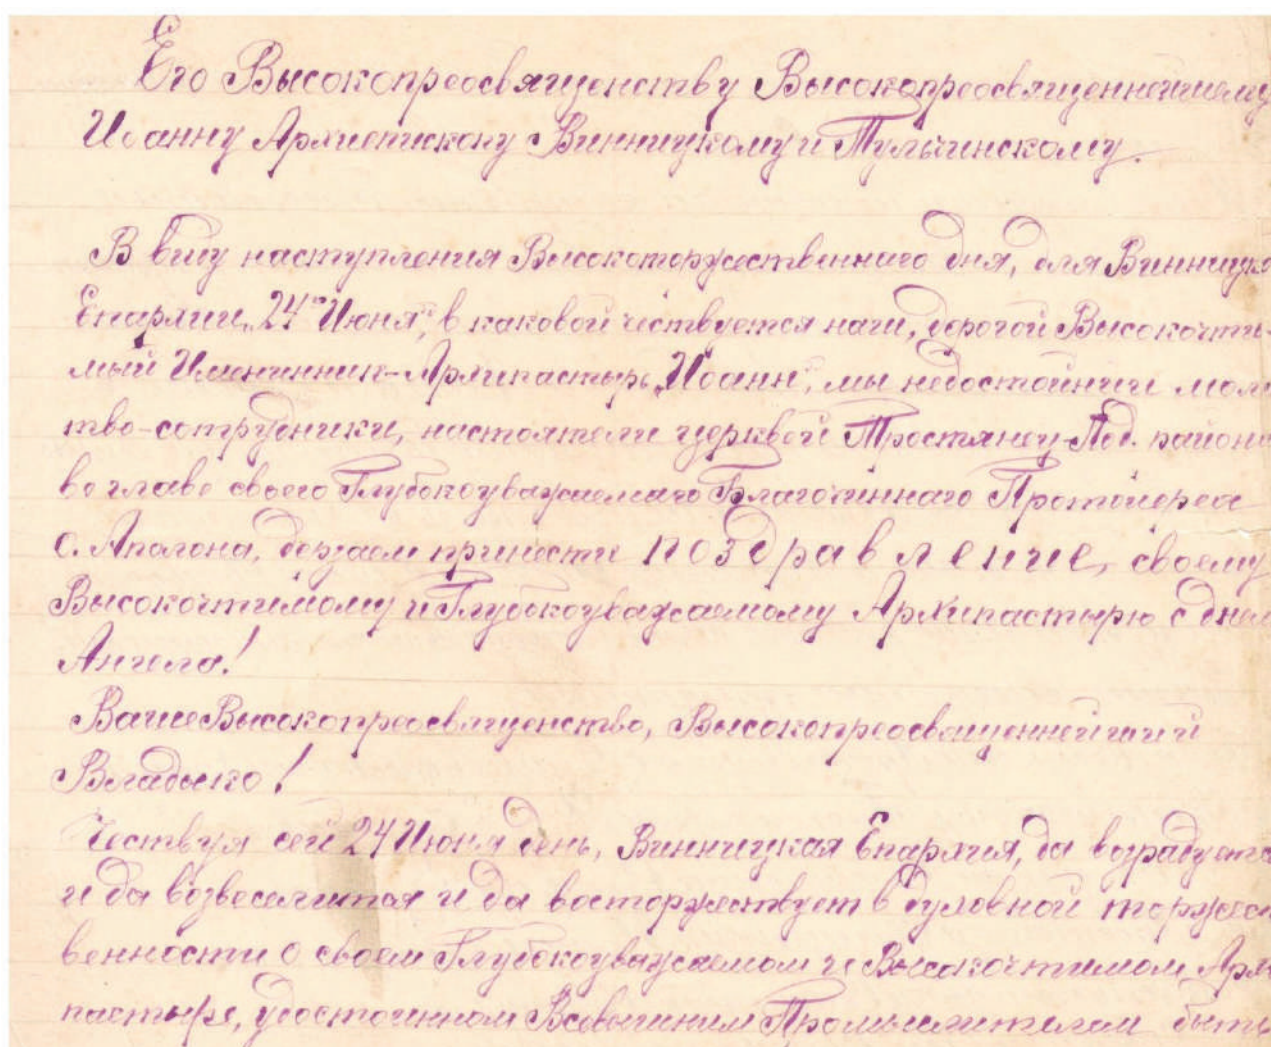 Его Высокопреосвященству Высокопреосвященнейшему
Иоанну Архиепископу Винницкому и Тульчинскому.
В виду наступления Высокоторжественнаго дня, для Винницко
Епархии, „24го Июня", в каковой чествуется наш, дорогой Высокочти-
мый Именинник-Архипастырь „Иоанн", мы недостойнии моли
тво-сотрудники, настоятели церквей Тростянец-Под. района
во главе своего Глубокоуважаемаго Благочиннаго Протоиерея
о. Аполона, дерзаем принести поздравление, своему
Высокочтимому и Глубокоуважаемому Архипастырю с днем
Ангела!
Ваше Высокопреосвященство, Высокопреосвященнейший
Владыко!
Чествуя сей 24 Июня день, Винницкая Епархия, да возрадуется
и да возвеселится и да восторжествует в духовной торжест
венности о своем Глубокоуважаемом и Высокочтимом Архи
пастыре, удостоинном Всевышним Промыслителем быть